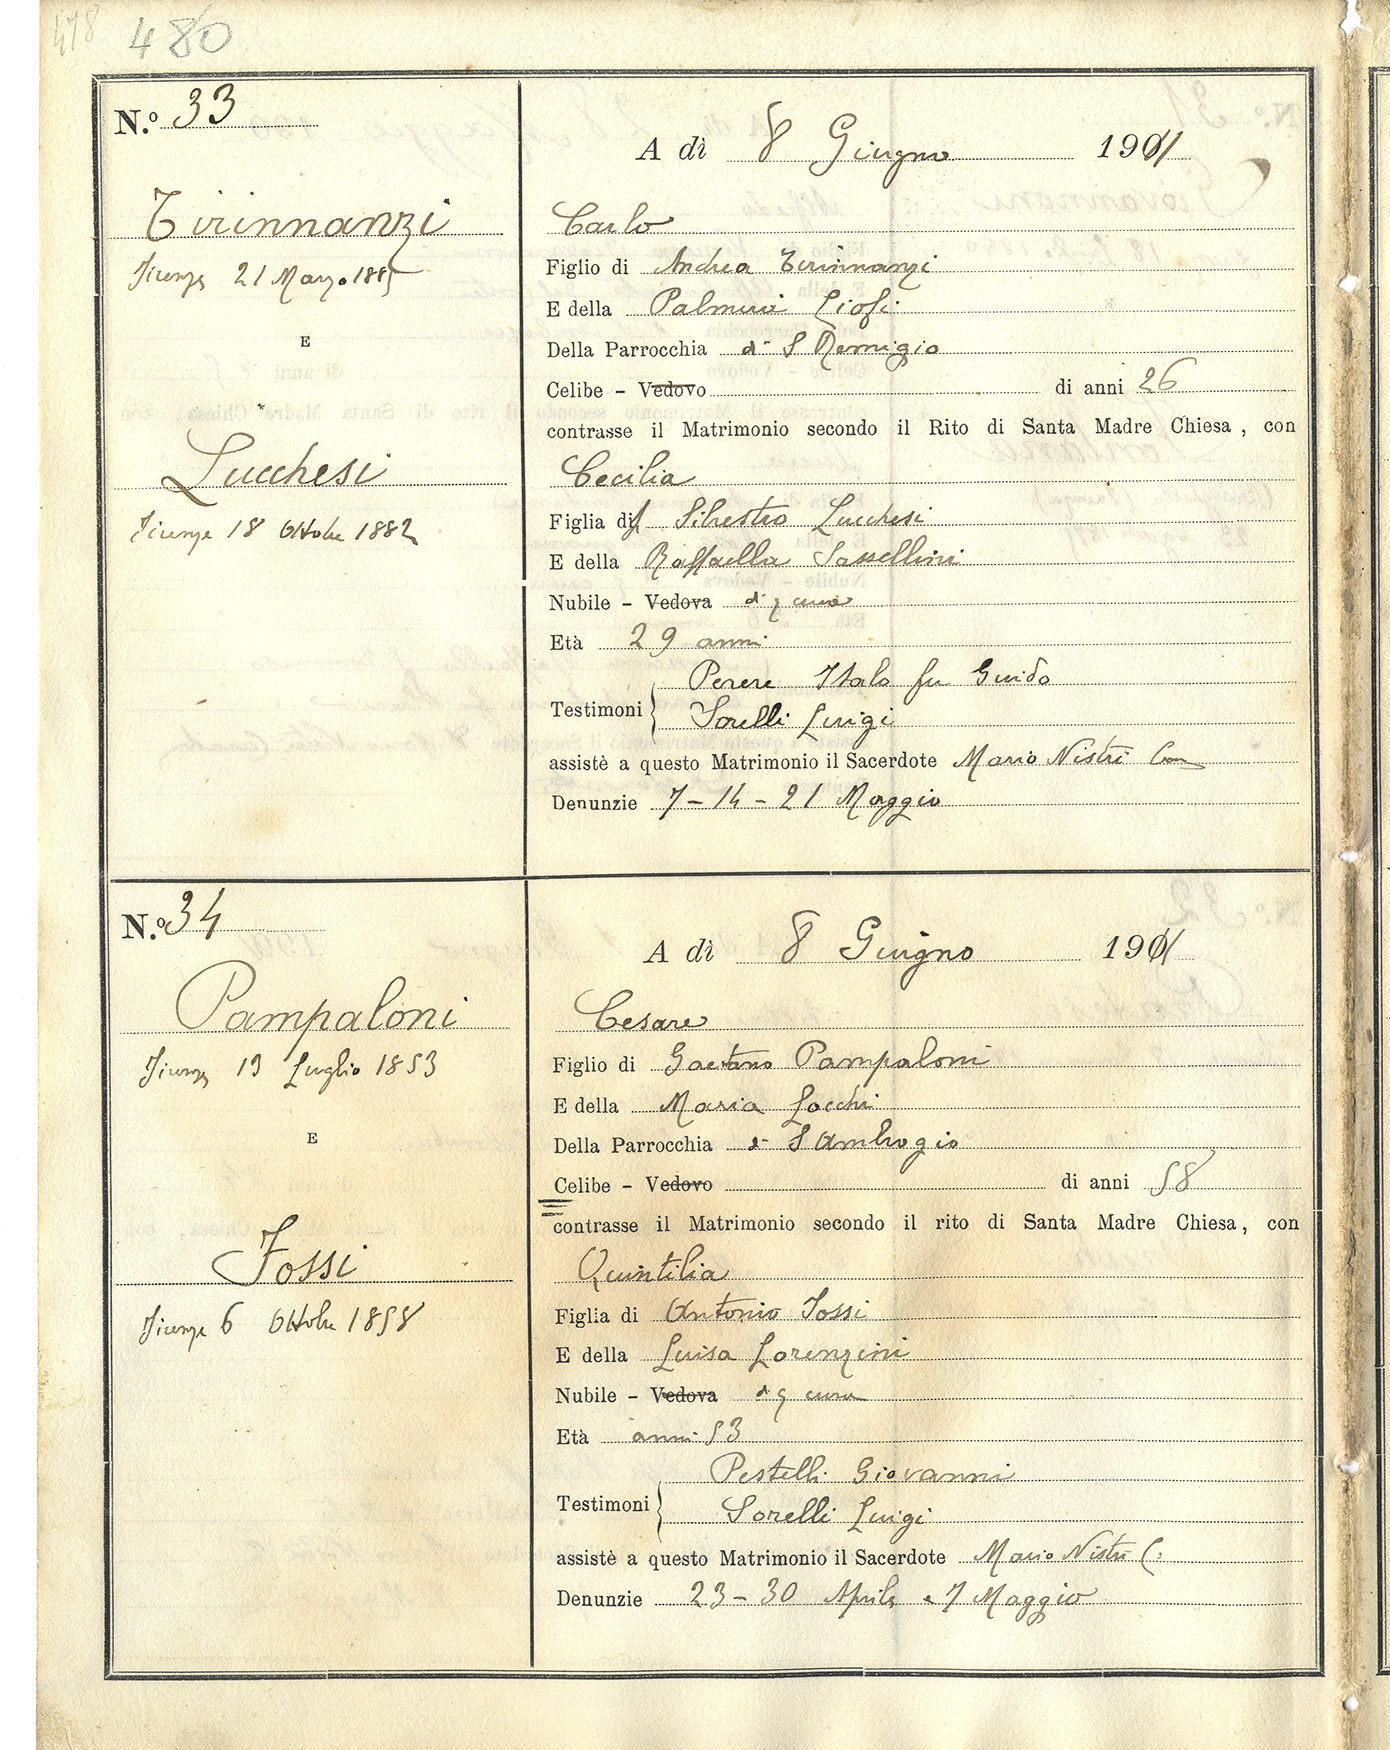 478 480
N.º 33
A dì 8 Giugno 1911
Tirinnanzi
Firenze 21 Marzo 1885
E
Lucchesi
Firenze 18 Ottobre 1882
Carlo
Figlio di Andrea Tirinnanzi
E della Palmira Ciofi
Della Parrocchia di S Remigio
Celibe - Vedovo di anni 26
contrasse il Matrimonio secondo il Rito di Santa Madre Chiesa, con
Cecilia
Figlia di Silvestro Lucchesi
E della Raffaella Sassellini
Nubile - Vedova di q cura
Età 29 anni
Testimoni
Perere Italo fu Guido
Sorelli Luigi
assistè a questo Matrimonio il Sacerdote Mario Nistri
Denunzie 7 - 14 - 21 Maggio
N.º 34
A dì 8 Giugno 1911
Pampaloni
Firenze 13 Luglio 1853
E
Fossi
Firenze 6 Ottobre 1858
Cesare
Figlio di Gaetano Pampaloni
E della Maria Locchi
Della Parrocchia di S Ambrogio
Celibe - Vedovo di anni 58
contrasse il Matrimonio secondo il rito di Santa Madre Chiesa, con
Quintilia
Figlia di Antonio Fossi
E della Luisa Lorenzini
Nubile - Vedova di q cura
Età anni 53
Testimoni
Pestelli Giovanni
Sorelli Luigi
assistè a questo Matrimonio il Sacerdote Mario Nistri C.
Denunzie 23 - 30 Aprile e 7 Maggio